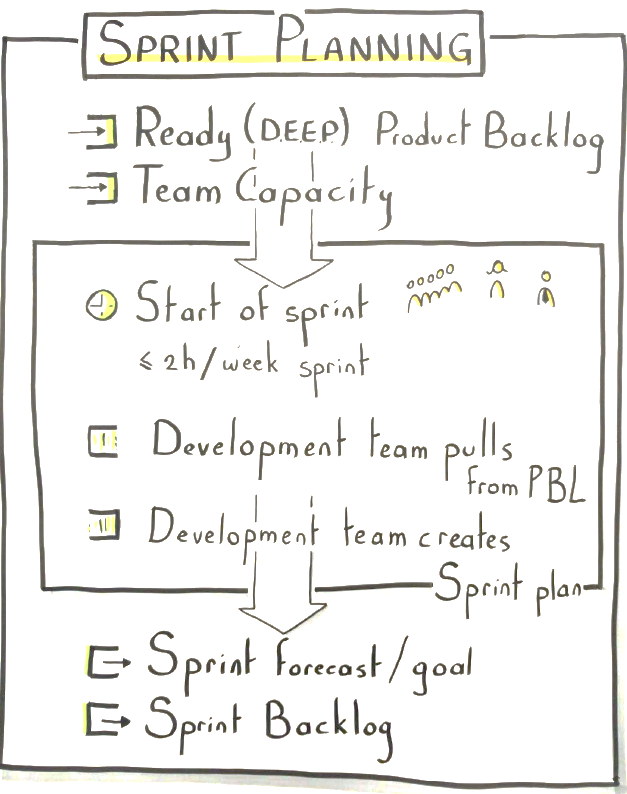 SPRINT PLANNING
Ready (D.E.E.P) Product Backlog
Team Capacity
Start of sprint
≤ 2h/week sprint
I Development team pulls
from PBL
II Development team creates
Sprint plan
Sprint forecast/goal
Sprint Backlog